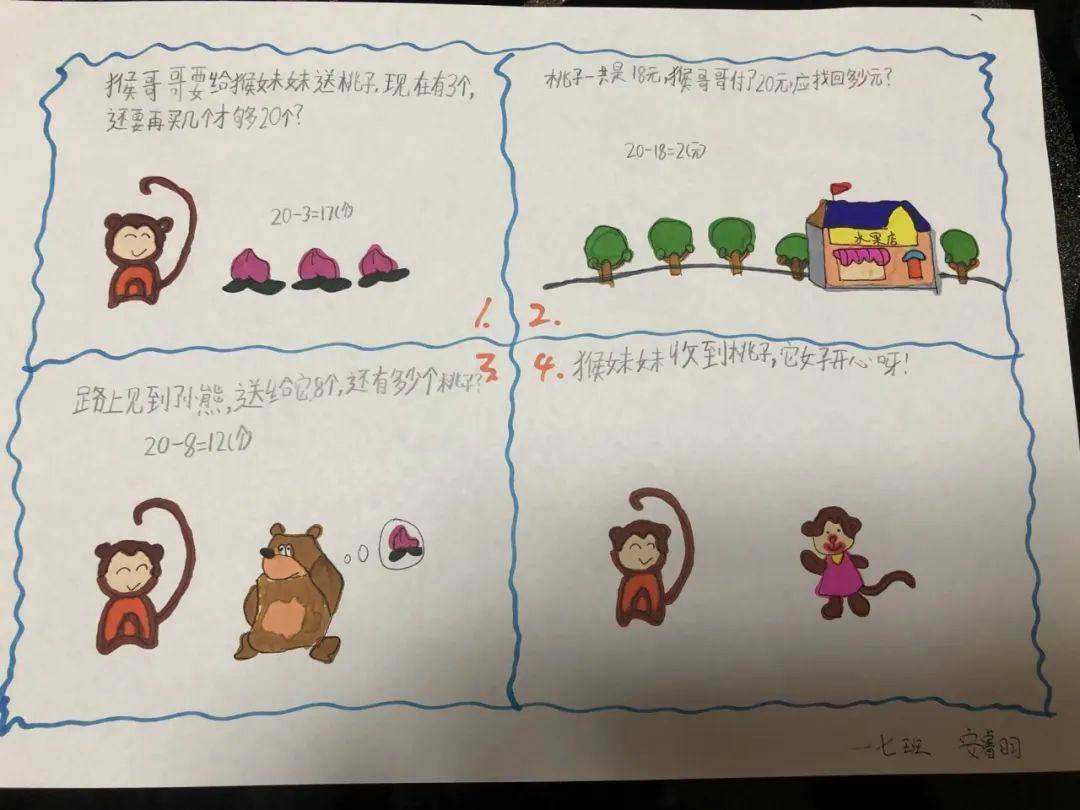 猴哥哥要给猴妹妹送桃子,现在有3个,
还要再买几个才够20个?
20-3=17(个)
1.
桃子一共是18元,猴哥哥付了20元,应找回多少元?
20-18=2(元)
水果店
2.
3.
路上见到小熊,送给它8个,还有多少个桃子?
20-8=12(个)
4.猴妹妹收到桃子,它好开心呀!
一七班 安睿羽